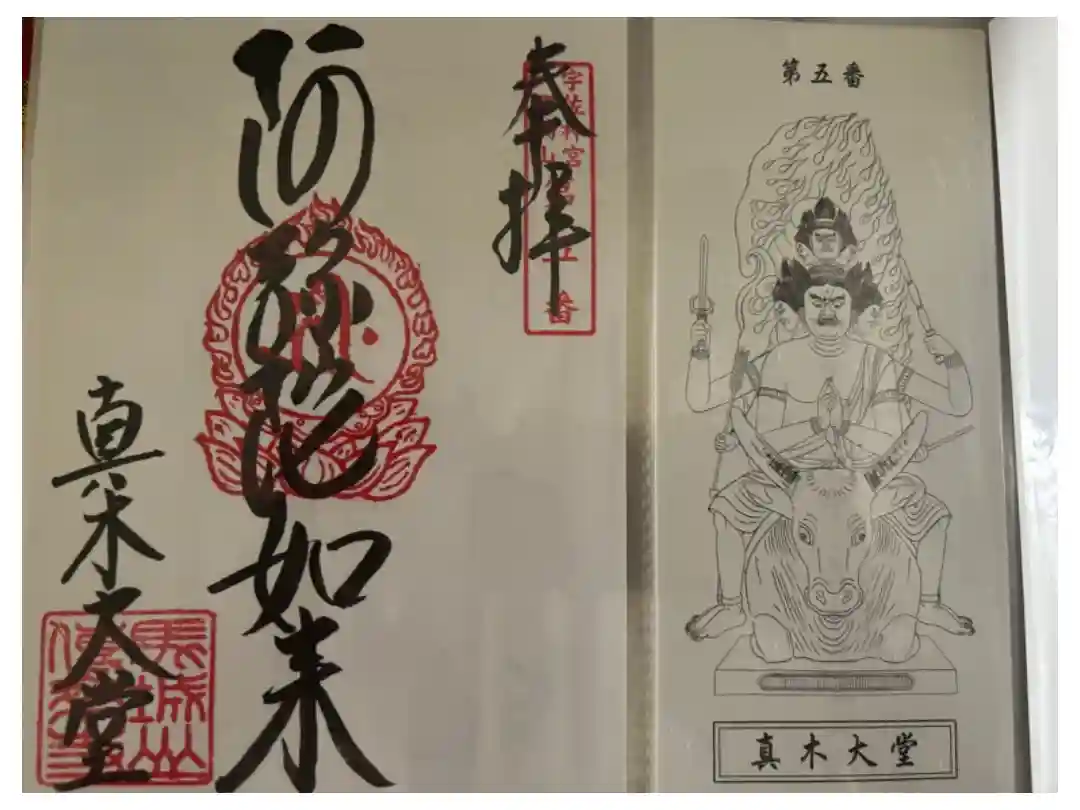 第五番
真木大堂
奉拝
宇佐神宮
阿弥陀如来
真木大堂
馬城山